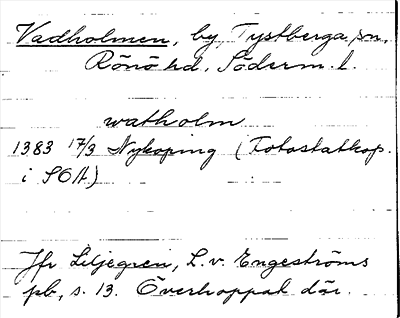 Vadholmen, by, Tystberga sn,
Rönö hd, Söderm. l.
watholm
1383 17/3 Nyköping (Fotostatkop.
i SOA)
Jfr Liljegren, L. v. Engeströms
pb, s. 13. Överhoppat där.